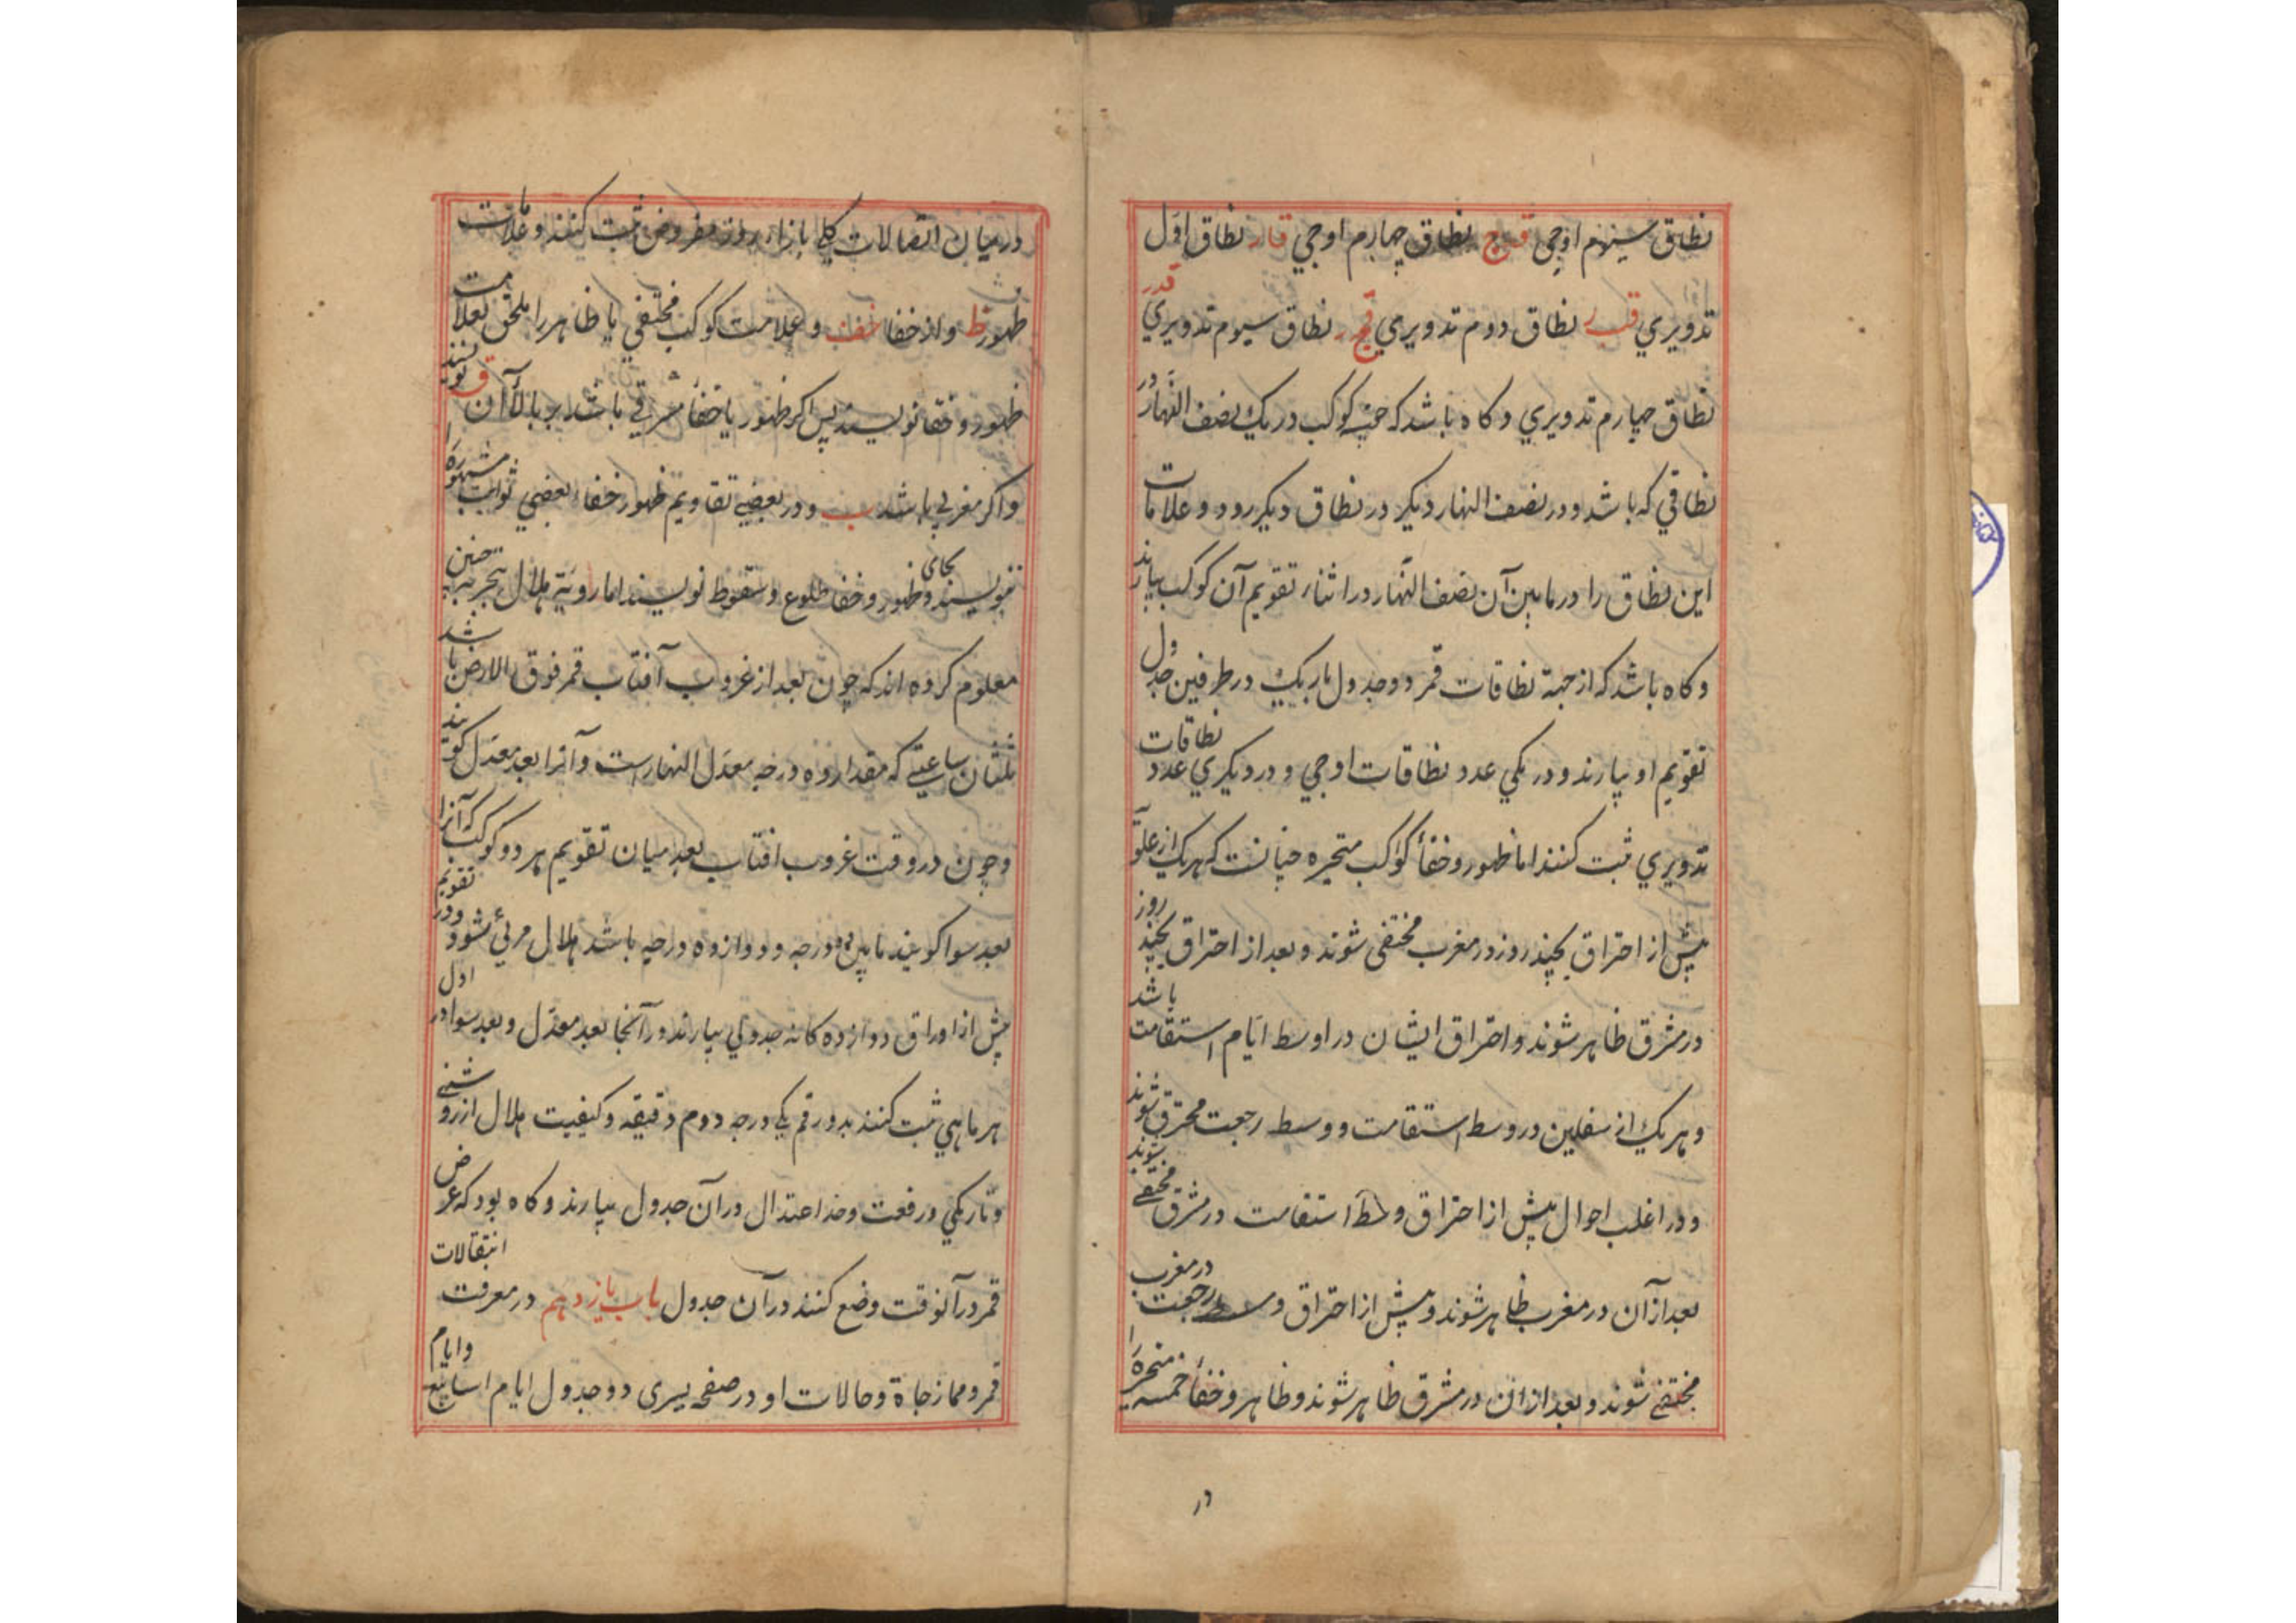 نطاق سیوم اوجی قج نطاق چهارم اوجی قار نطاق اوّل
تدویری قبر نطاق دوم تدویری قجر نطاق سیوم تدویری قدر
نطاق چهارم تدویری وکاه باشد که خمسه کوکب در یک نصف النهار در
نطاقی که باشد و در نصف النهار دیکر در نطاق دیکر رود و علامات
این نطاق را در مابین آن نصف النهار در اثناء تقویم آن کوکب بیارند
وکاه باشد که از جهة نطاقات قمر دو جدول باریک در طرفین جدول
تقویم او بیارند و در یکی عدد نطاقات اوجی و در دیکری عدد نطاقات
تدویری ثبت کنند اما ظهور و خفأ کواکب متحیره چنانست که هریک از علوّ
پیش از احتراق بچند روز در مغرب مختفی شوند و بعد از احتراق بچند روز
در مشرق ظاهر شوند و احتراق ایشان در اوسط ایّام استقامت باشد
و هر یک از سفلین در وسط استقامت و وسط رجعت محترق شوند
و در اغلب احوال پیش از احتراق وسط استقامت در مشرق مختفی شوند
بعد از آن در مغرب ظاهر شوند و پیش از احتراق وسط رجعت در مغرب
مختفی شوند و بعد از ان در مشرق ظاهر شوند و ظاهر و خفأ خمسه متحیره را
در
در میان اتصالات کلی بازاء روز مفروض ثبت کنند و علامات
ظهور ظ و از خفا خف و علامت کوکب مختفی یا ظاهر را ملحق بعلامت
ظهور و خفا نویسند پس اکر ظهور یا خفأ مشرقی باشد بر بالأ آن ق نویسند
و اکر مغربی باشد ب و در بعضی تقاویم ظهور خفاء بعضی ثوابت مشهوره را
بنویسند و بجای ظهور و خفا طلوع و سقوط نویسند اما رویة هلال بتجربه چنین
معلوم کرده اند که چون بعد از غروب آفتاب قمر فوق الارض باشد
ثلثان ساعتی که مقدار ده درجه معدّل النهار است و آنرا بعد معدّل کویند
و چون در وقت غروب افتاب بعد میان تقویم هر دو کوکب که آنرا
بعد سوا کویند مابین ده درجه و دوازده درجه باشد هلال مرئی شود و در تقویم
پیش از اوراق دوازده کانه جدولی بیارند در آنجا بعد معدّل و بعد سوا در اول
هر ماهی ثبت کنند بدو رقم یکی درجه دوم دقیقه و کیفیت هلال از روشنی
و تاریکی و رفعت و حد اعتدال در آن جدول بیارند وکاه بود که عرض
قمر در آنوقت وضع کنند در آن جدول باب یازدهم در معرفت انتقالات
قمر و ممازجاة و حالات او در صفحه یسری دو جدول ایام اسابیع و ایام